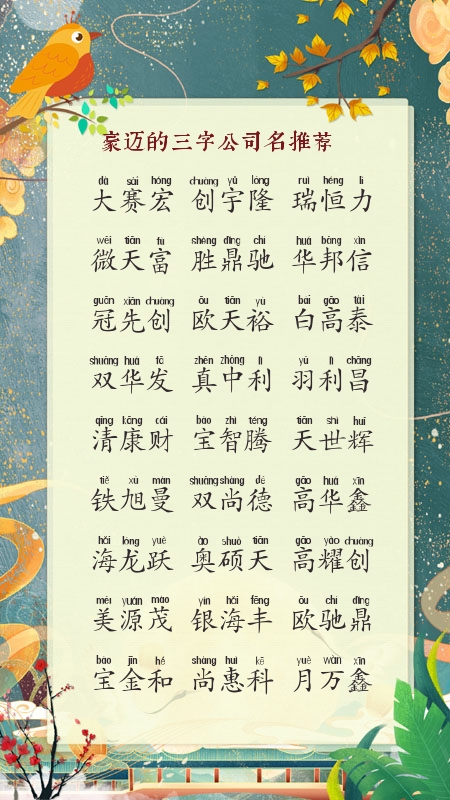 豪迈的三字公司名推荐
dà sài hóng chuàng yǔ lóng ruì héng lì
大赛宏 创宇隆 瑞恒力
wēi tiān fù shèng dǐng chí huá bāng xìn
微天富 胜鼎驰 华邦信
guān xiān chuàng ōu tiān yù bái gāo tài
冠先创 欧天裕 白高泰
shuāng huá fā zhēn zhōng lì yǔ lì chāng
双华发 真中利 羽利昌
qīng kāng cái bǎo zhì téng tiān shì huī
清康财 宝智腾 天世辉
tiě xù màn shuāng shàng dé gāo huá xīn
铁旭曼 双尚德 高华鑫
hǎi lóng yuè ào shuò tiān gāo yào chuàng
海龙跃 奥硕天 高耀创
měi yuán mào yín hǎi fēng ōu chí dǐng
美源茂 银海丰 欧驰鼎
bǎo jīn hé shàng huì kē yuè wàn xīn
宝金和 尚惠科 月万鑫